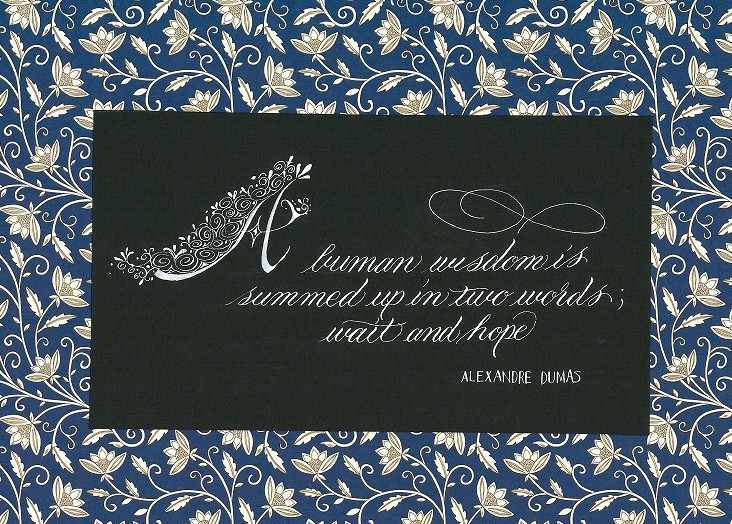 A human wisdom is
summed up in two words;
wait and hope
ALEXANDRE DUMAS